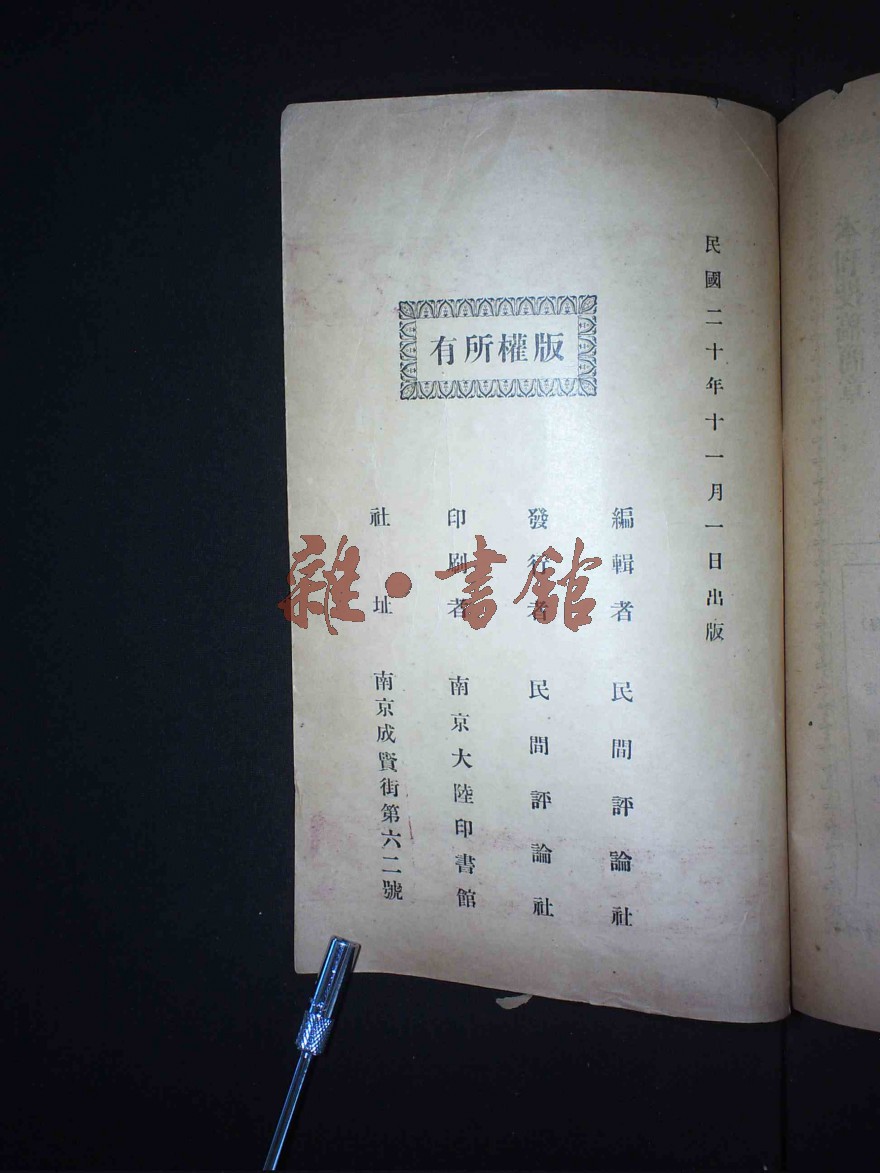 民國二十年十一月一日出版
版權所有
編輯者 民間評論社
發行者 民間評論社
印刷者 南京大陸印書館
社址 南京成賢街第六二號
雜·書館